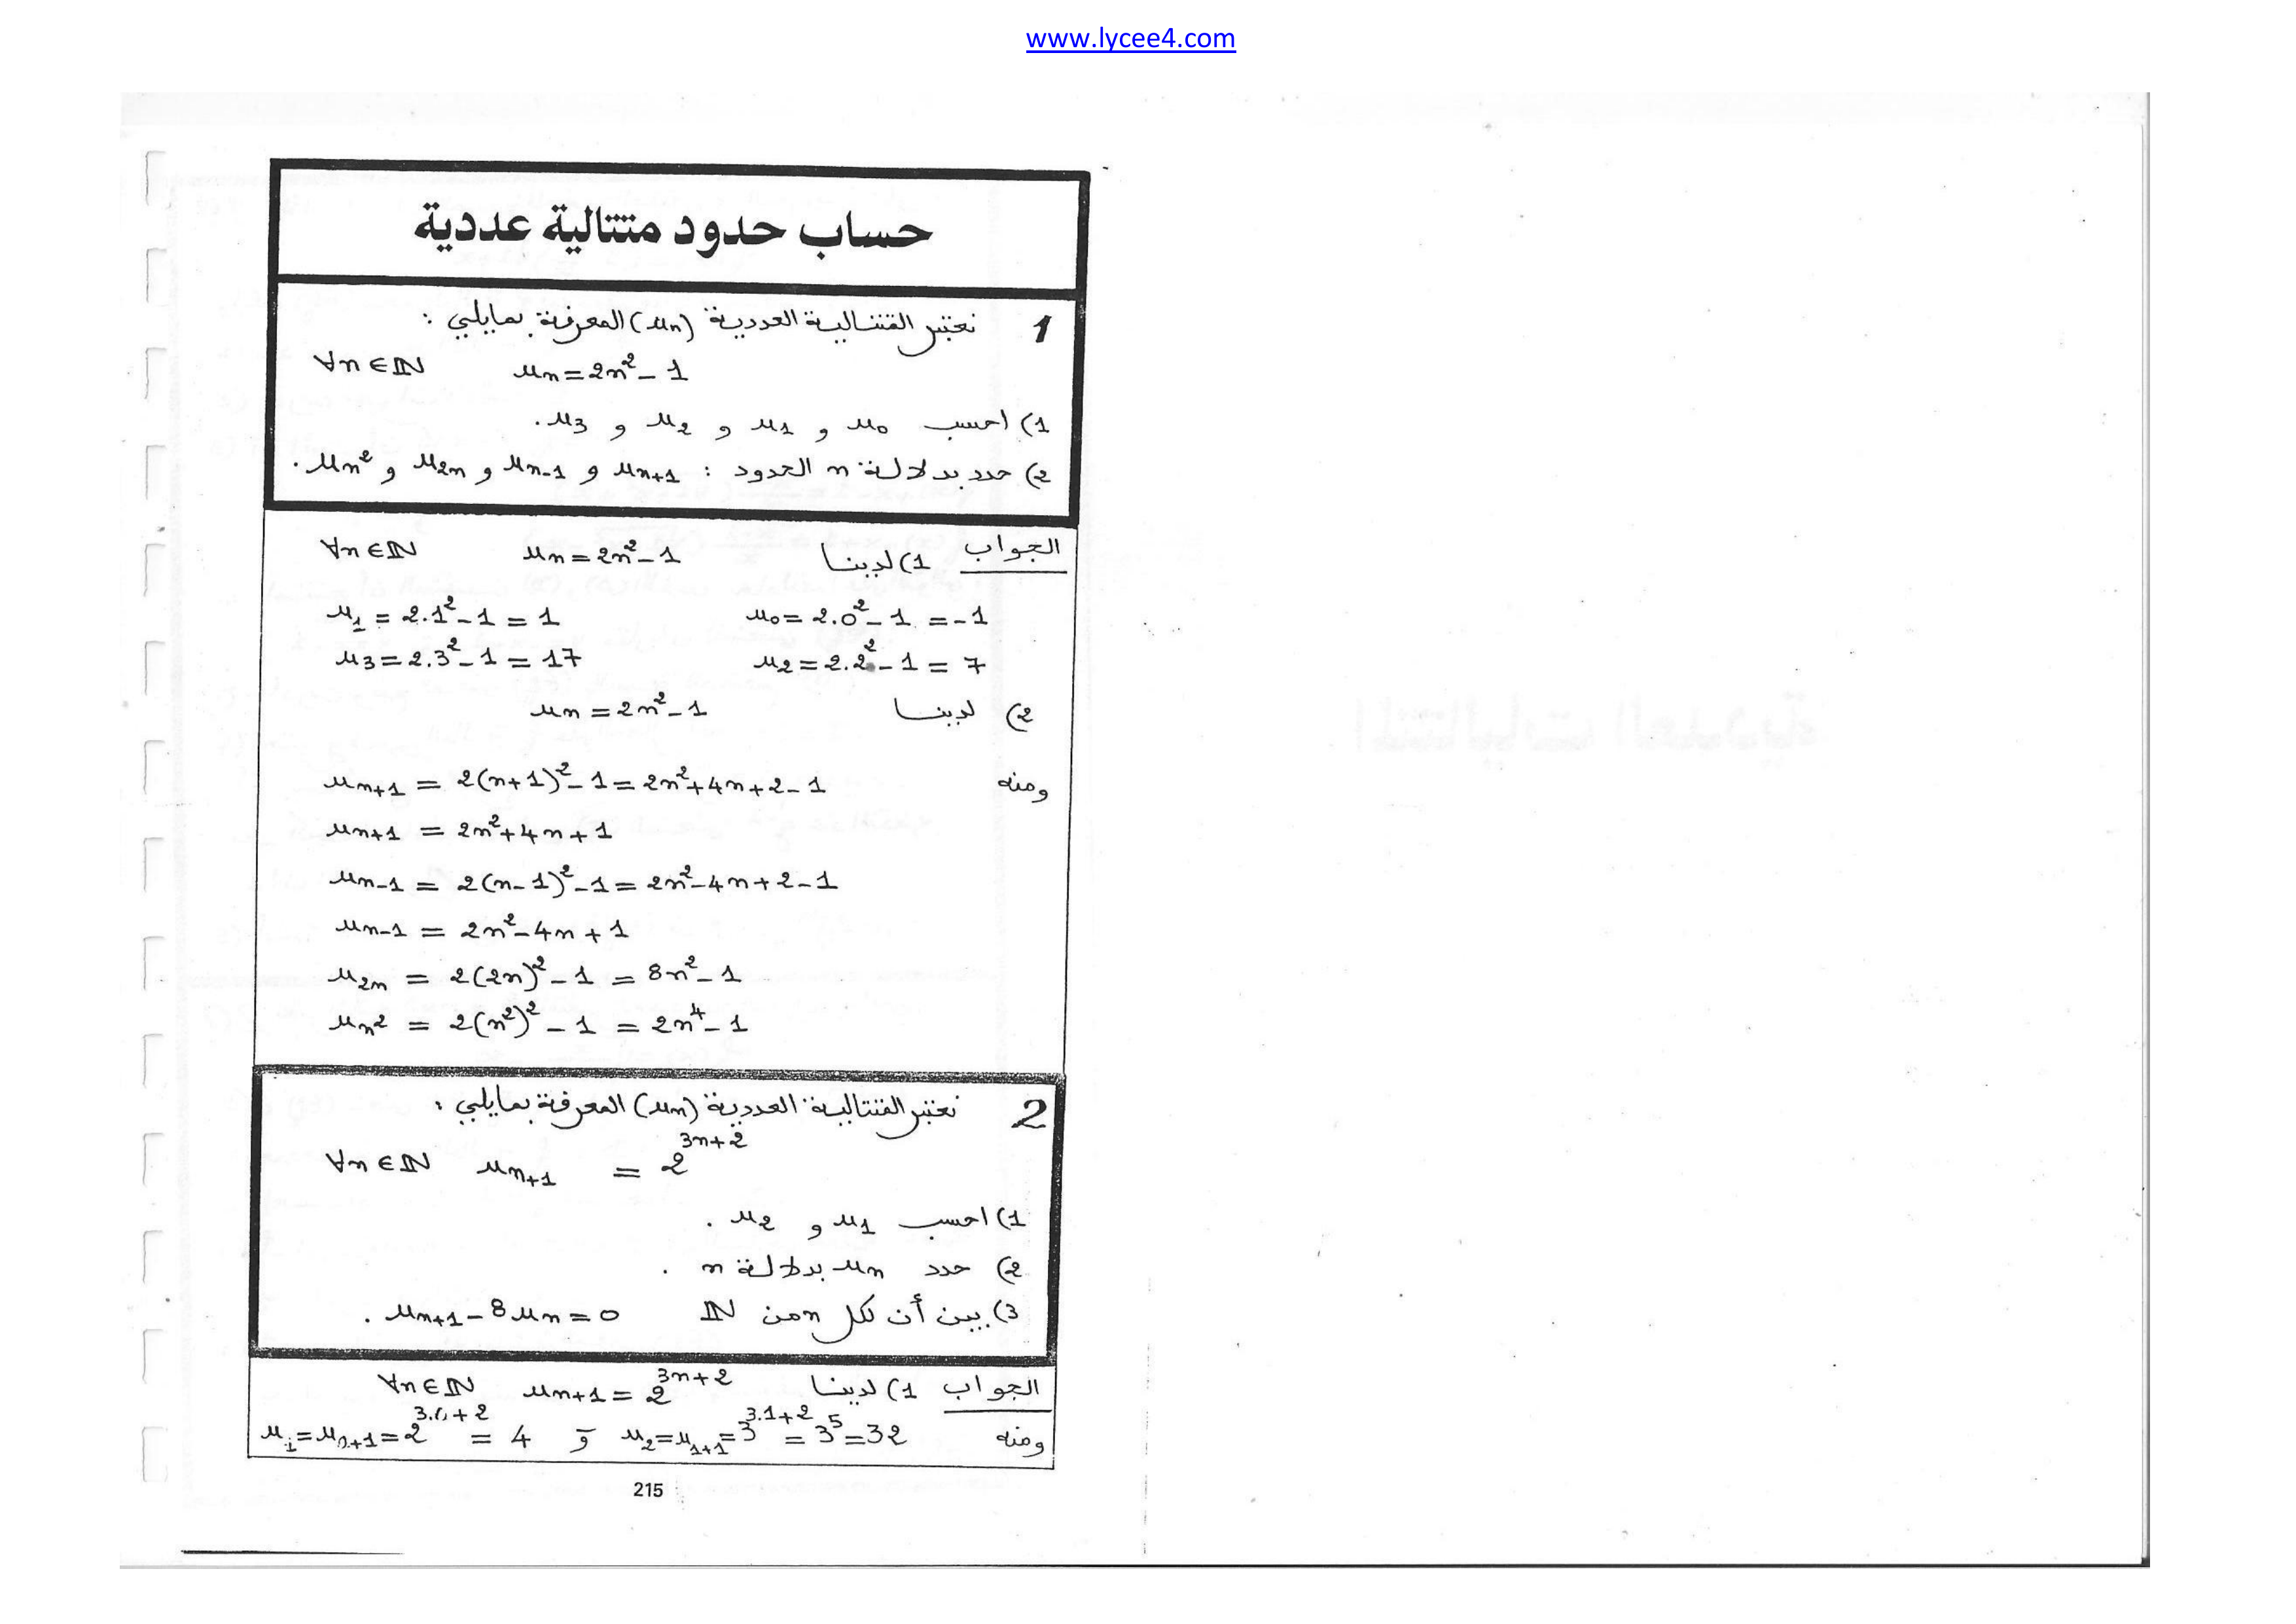 www.lycee4.com
حساب حدود متتالية عددية
1 نعتبر المتتالية العددية (uₙ) المعرفة بمايلي :
∀n∈ℕ uₙ = 2n² - 1
1) احسب u₀ و u₁ و u₂ و u₃.
2) حدد بدلالة n الحدود : uₙ₊₁ و uₙ₋₁ و u₂ₙ و uₙ².
الجواب 1) لدينا uₙ = 2n² - 1 ∀n∈ℕ
u₁ = 2.1² - 1 = 1 u₀ = 2.0² - 1 = -1
u₃ = 2.3² - 1 = 17 u₂ = 2.2² - 1 = 7
2) لدينا uₙ = 2n² - 1
ومنه uₙ₊₁ = 2(n+1)² - 1 = 2n² + 4n + 2 - 1
uₙ₊₁ = 2n² + 4n + 1
uₙ₋₁ = 2(n-1)² - 1 = 2n² - 4n + 2 - 1
uₙ₋₁ = 2n² - 4n + 1
u₂ₙ = 2(2n)² - 1 = 8n² - 1
uₙ² = 2(n²)² - 1 = 2n⁴ - 1
2 نعتبر المتتالية العددية (uₙ) المعرفة بمايلي :
∀n∈ℕ uₙ₊₁ = 2³ⁿ⁺²
1) احسب u₁ و u₂ .
2) حدد uₙ بدلالة n .
3) بين أن لكل n من ℕ uₙ₊₁ - 8uₙ = 0 .
الجواب 1) لدينا uₙ₊₁ = 2³ⁿ⁺² ∀n∈ℕ
ومنه u₁ = u₀₊₁ = 2^(3.0+2) = 4 و u₂ = u₁₊₁ = 3^(3.1+2) = 3⁵ = 32
215